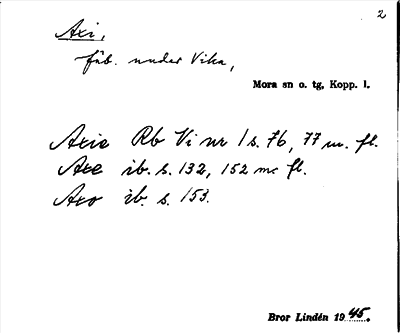 2
Axi,
fäb. under Vika,
Mora sn o. tg, Kopp. l.
Axie Rb Vi nr 1 s. 76, 77 m. fl.
Axe ib. s. 132, 152 m fl.
Axo ib. s. 153.
Bror Lindén 1945.